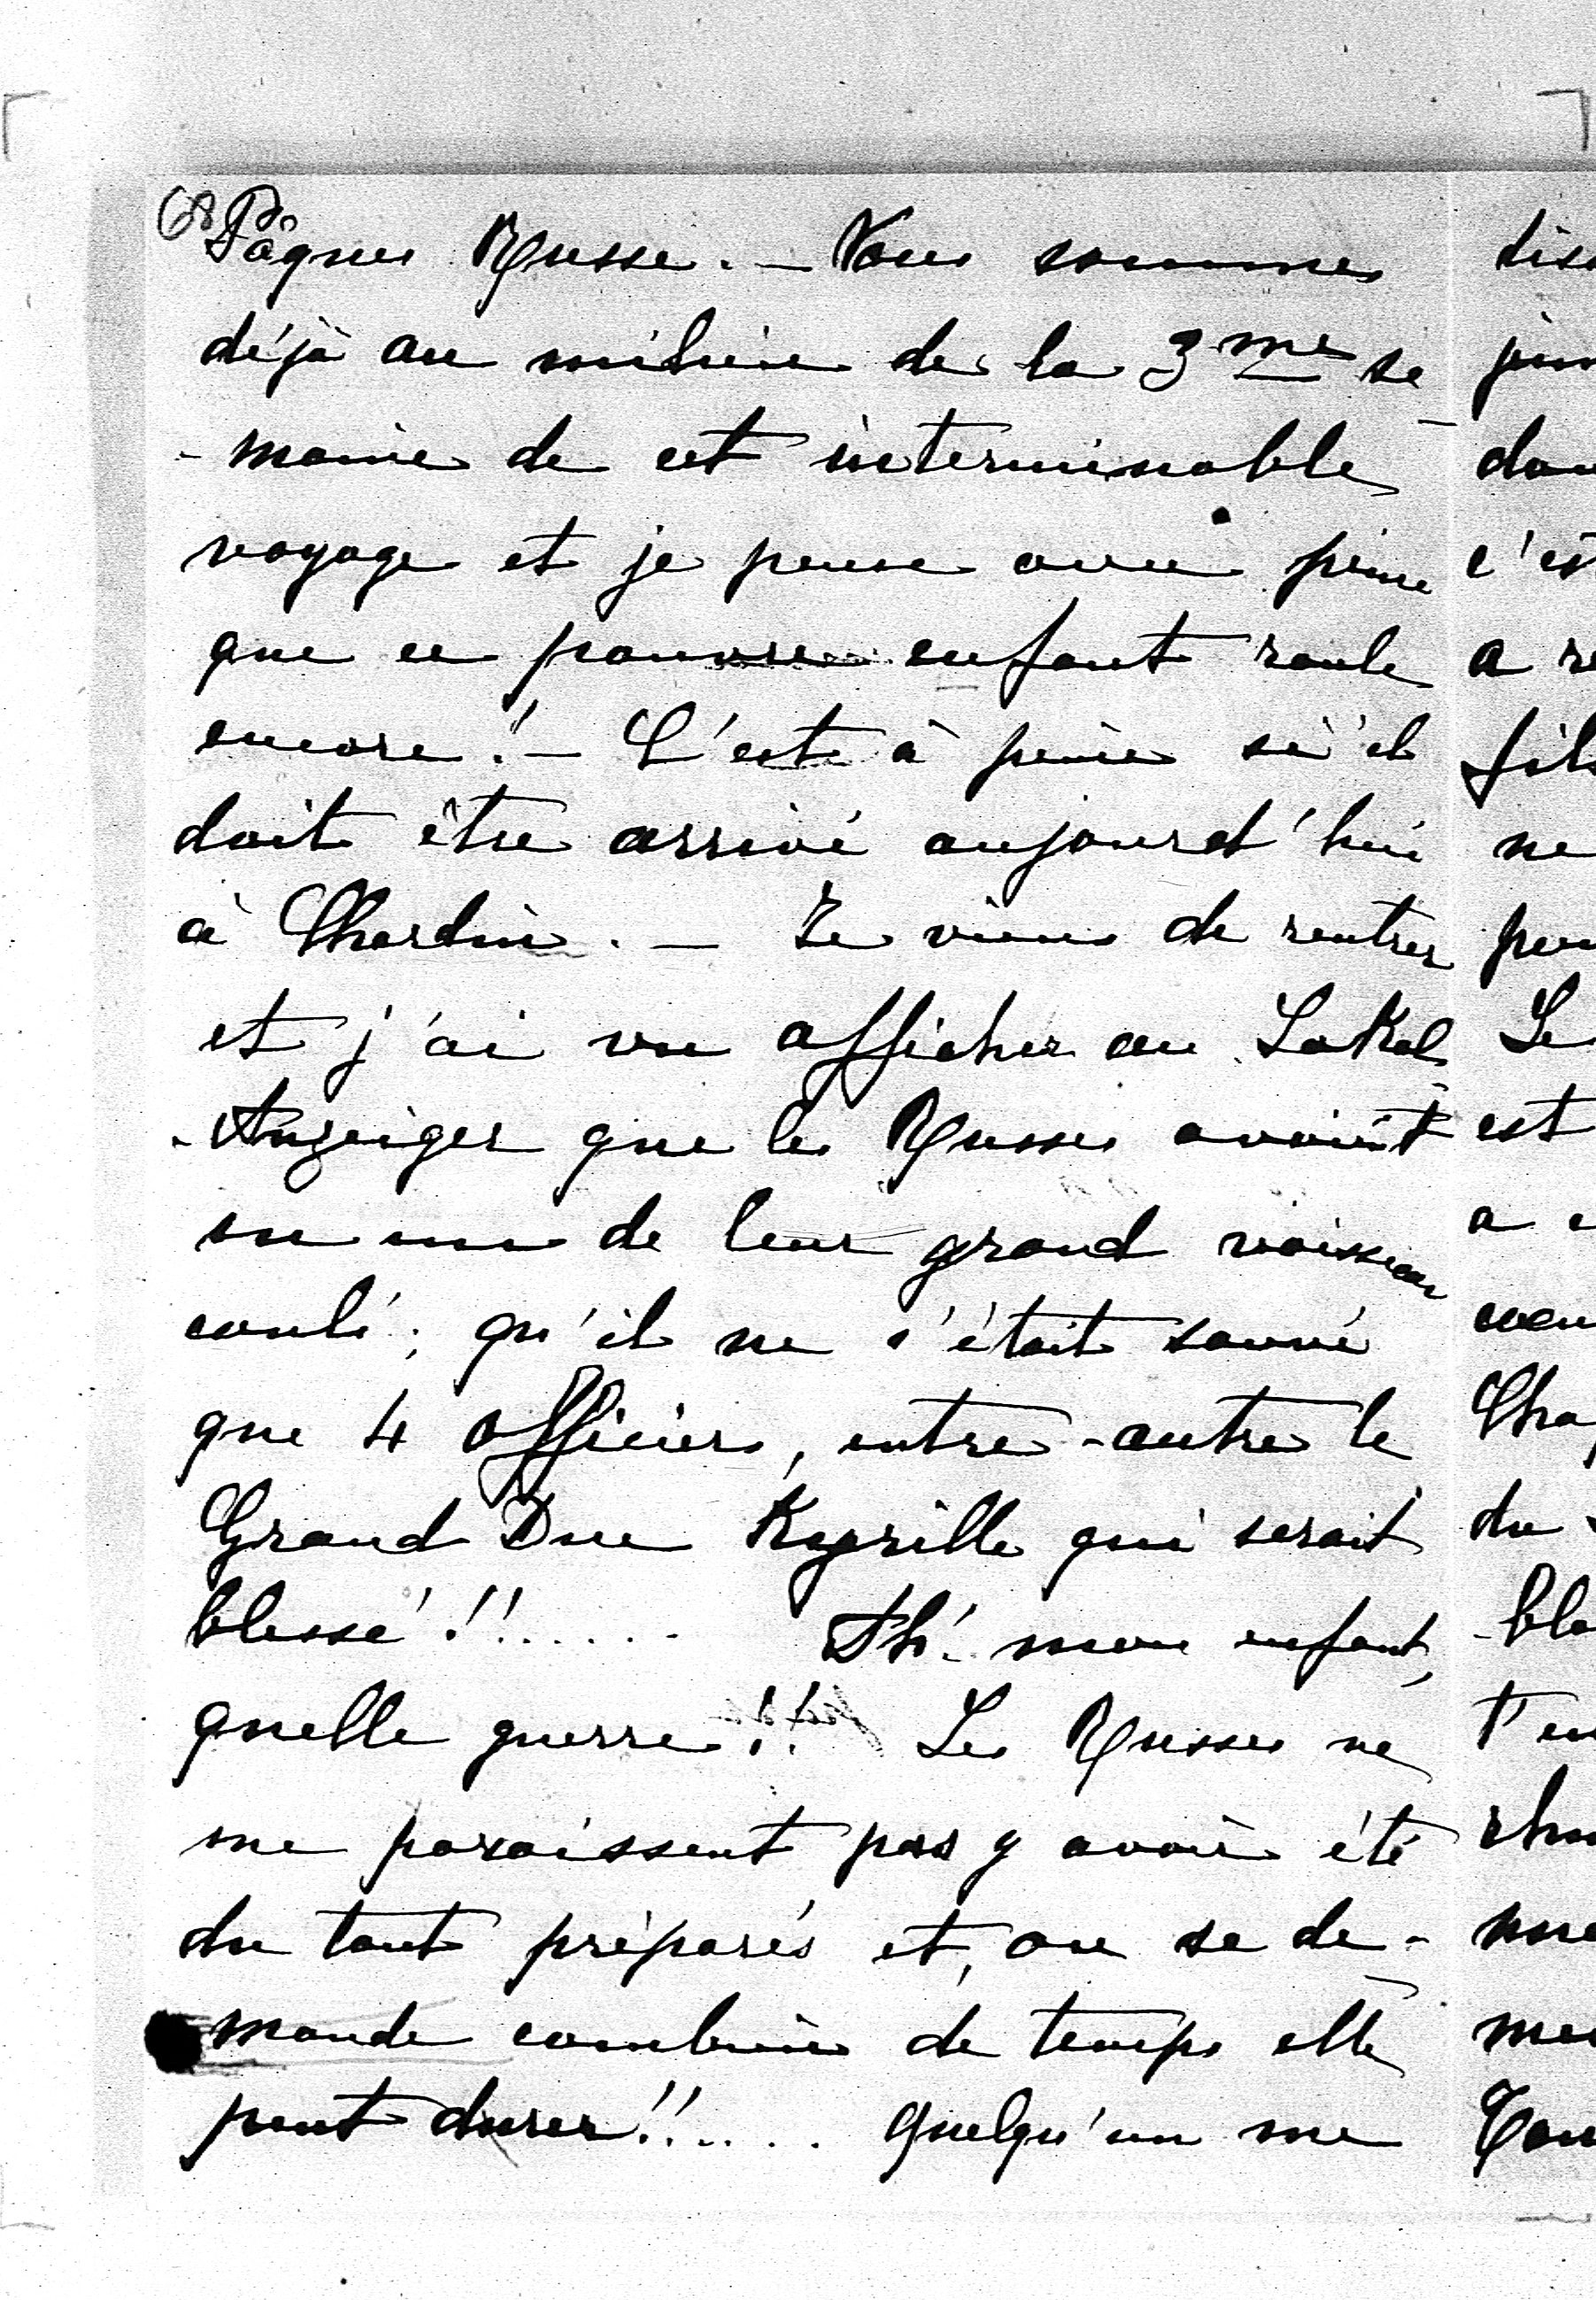 68
Pâques Russe. — Nous sommes
déjà au milieu de la 3me se
- maine de cet interminable
voyage et je pense avec peine
que ce pauvre enfant roule
encore! — C'est à peine si'il
doit être arrivé aujourd'hui
à Charbin. — Je viens de rentrer
et j'ai vu afficher au Lokal
- Anzeiger que les Russes avaient
eu un de leur grand vaisseau
coulé; qu'il ne s'était sauvé
que 4 officiers, entre-autre le
Grand Duc Kyrille qui serait
blessé!!...... Ah! mon enfant,
quelle guerre!! Les Russes ne
me paraissent pas y avoir été
du tout préparés et, on se de-
mande combien de temps elle
peut durer!!..... Quelqu'un me